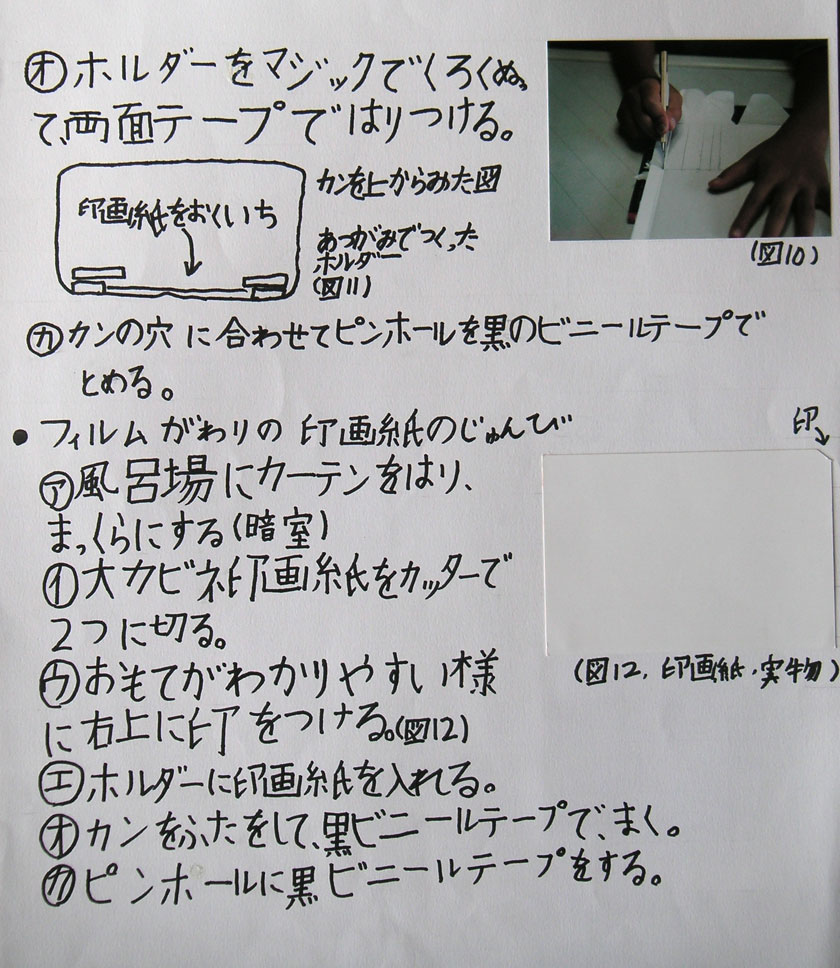 ㋔ホルダーをマジックでくろくぬっ
て、両面テープではりつける。
(図10)
印画紙をおくいち
カンを上からみた図
あつがみでつくった
ホルダー
(図11)
㋕カンの穴に合わせてピンホールを黒のビニールテープで
とめる。
●フィルムがわりの印画紙のじゅんび
㋐風呂場にカーテンをはり、
まっくらにする(暗室)
㋑大カビネ印画紙をカッターで
2つに切る。
㋒おもてがわかりやすい様
に右上に印をつける。(図12)
印
(図12.印画紙・実物)
㋓ホルダーに印画紙を入れる。
㋔カンをふたをして、黒ビニールテープで、まく。
㋕ピンホールに黒ビニールテープをする。